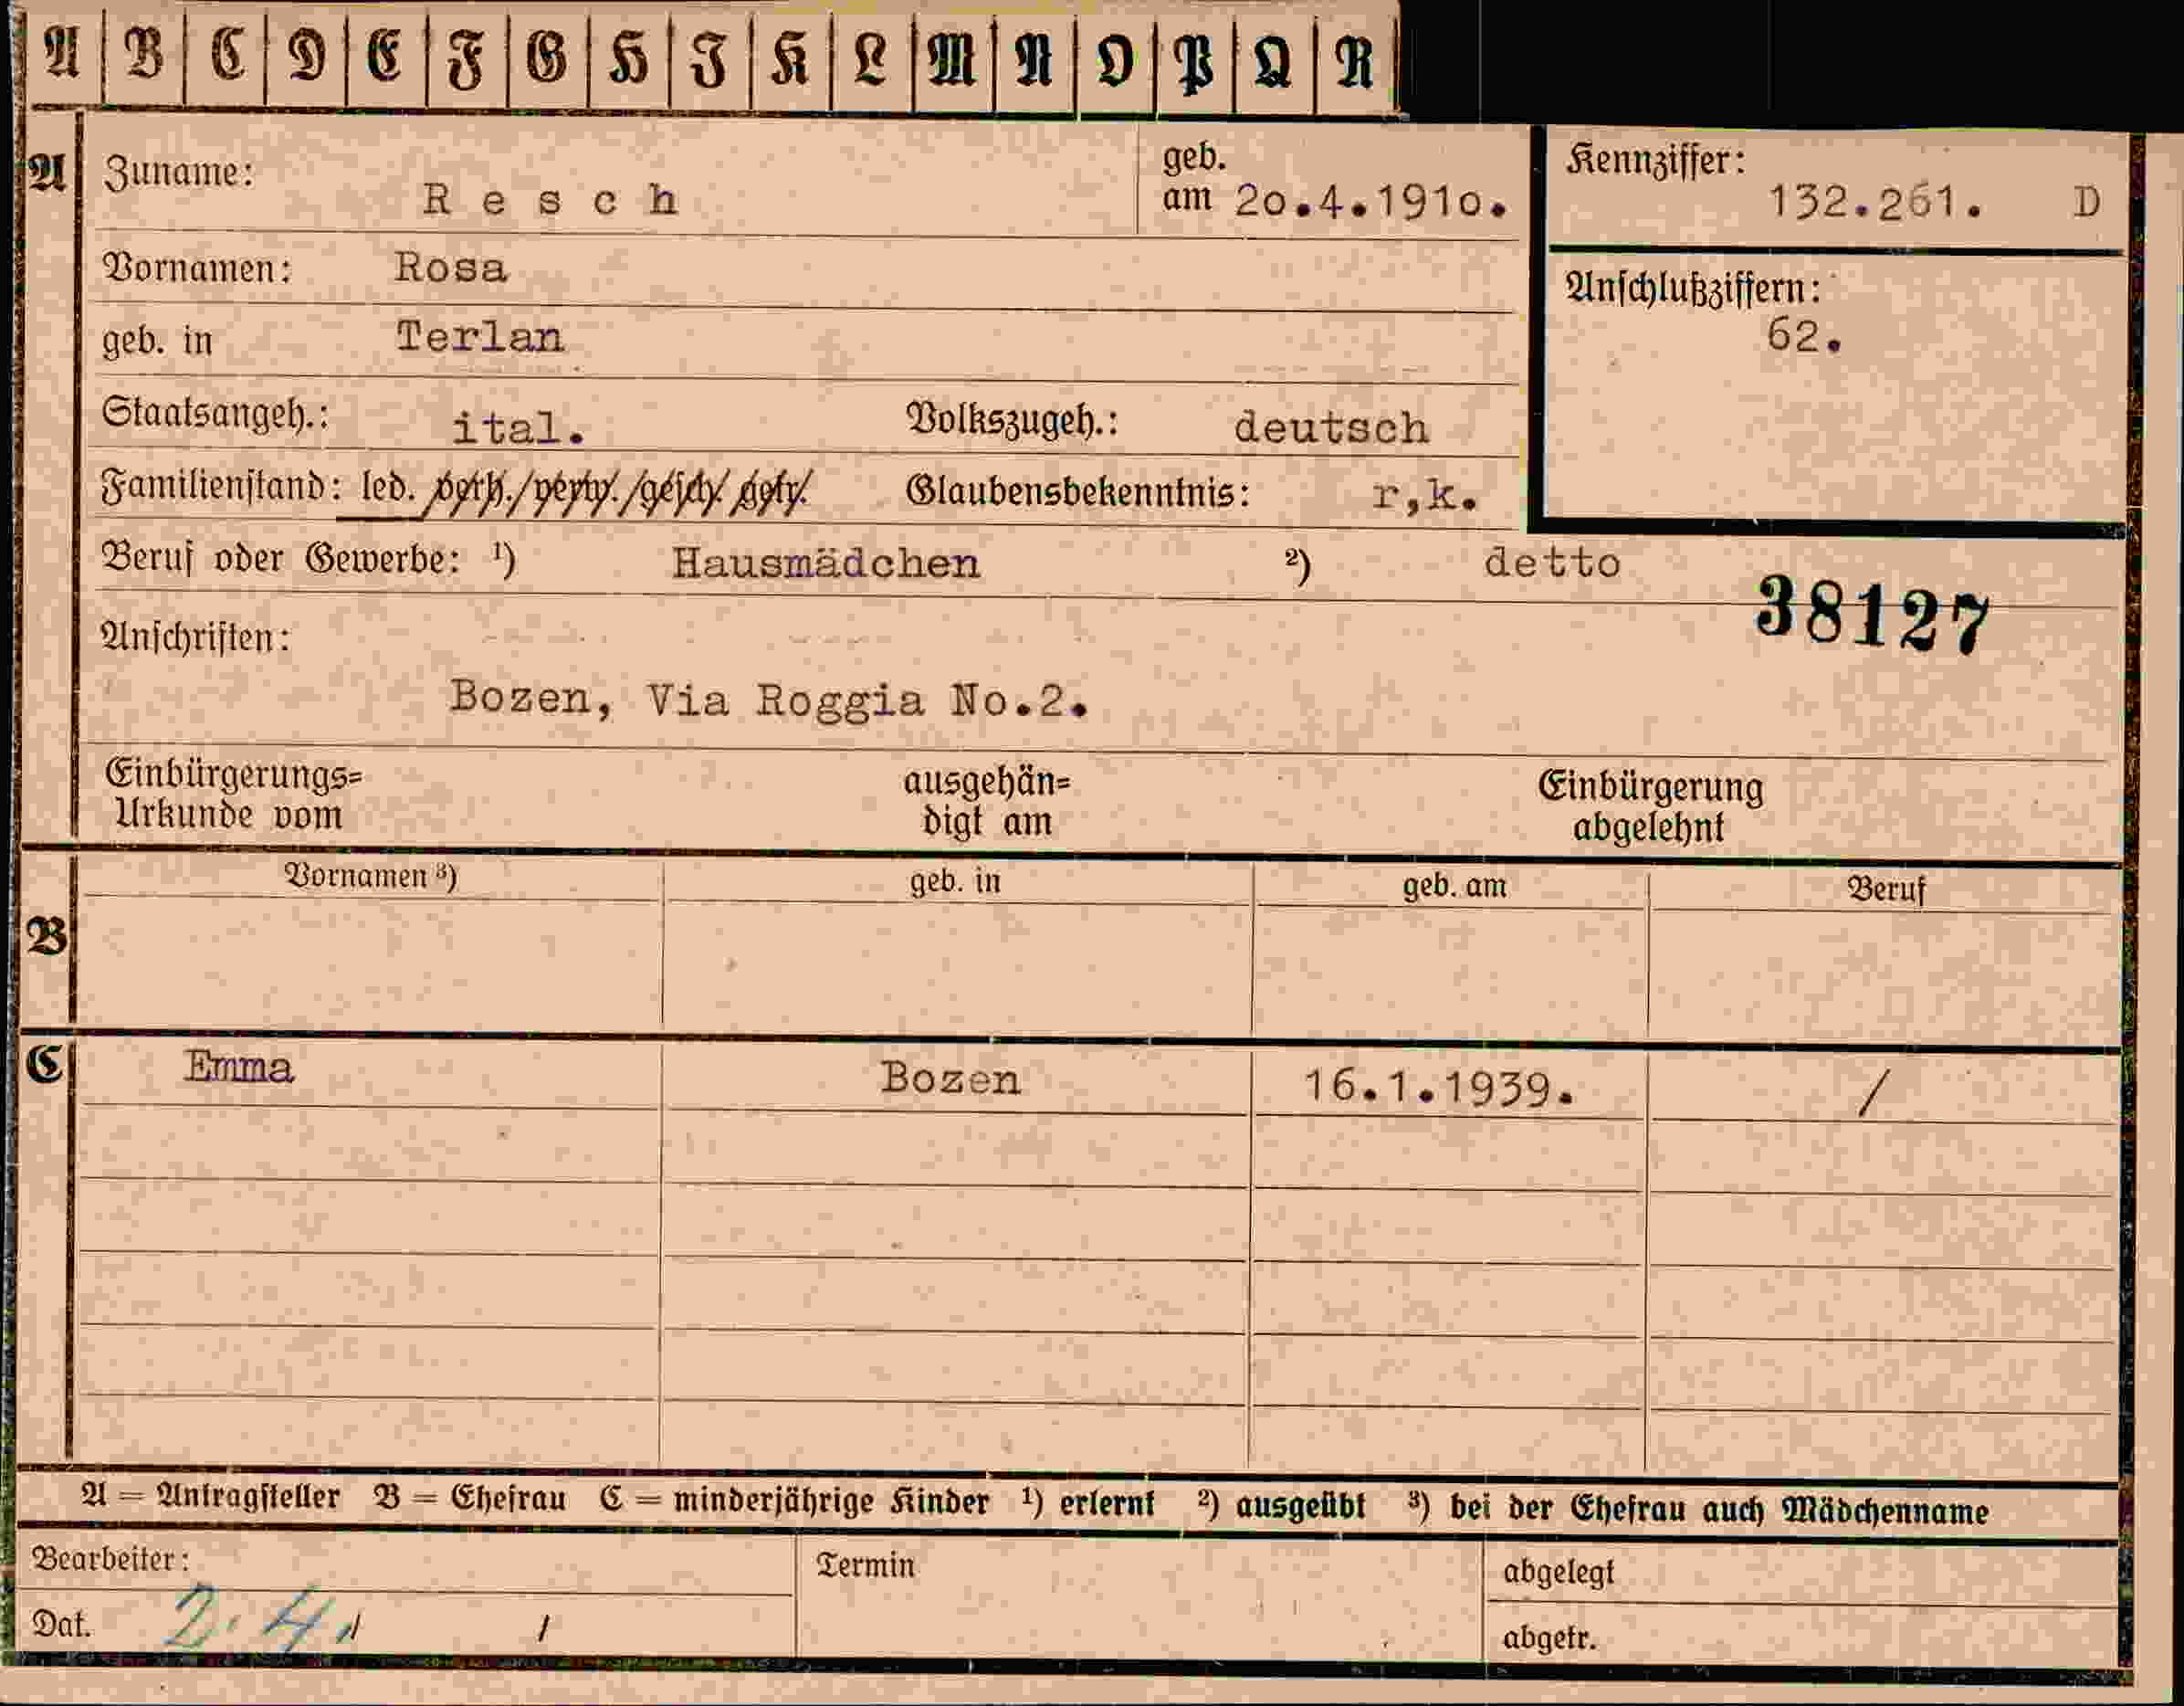 A B C D E F G H I K L M N O P Q R
A Zuname: Resch geb. am 20.4.1910. Kennziffer: 132.261. D
Vornamen: Rosa
Anschlußziffern: 62.
geb. in Terlan
Staatsangeh.: ital. Volkszugeh.: deutsch
Familienstand: led. verh./verw./gesch. getr. Glaubensbekenntnis: r,k.
Beruf oder Gewerbe: ¹) Hausmädchen ²) detto
38127
Anschriften:
Bozen, Via Roggia No.2.
Einbürgerungs= ausgehän= Einbürgerung
Urkunde vom digt am abgelehnt
Vornamen ³) geb. in geb. am Beruf
B
C Emma Bozen 16.1.1939. /
A = Antragsteller B = Ehefrau C = minderjährige Kinder ¹) erlernt ²) ausgeübt ³) bei der Ehefrau auch Mädchenname
Bearbeiter: Termin abgelegt
Dat. 2.4. / / abgetr.